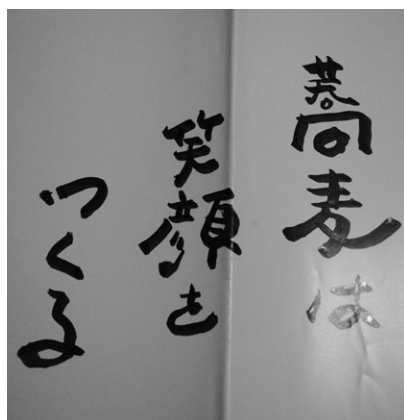 蕎麦は
笑顔を
つくる